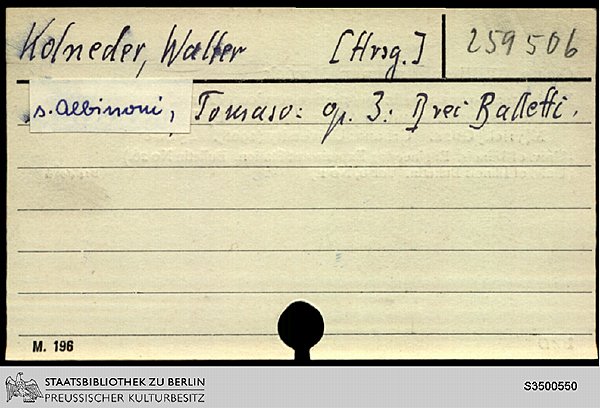 Kolneder, Walter [Hrsg.] 259506
s. Albinoni, Tomaso: op. 3. Drei Balletti.
M. 196
STAATSBIBLIOTHEK ZU BERLIN
PREUSSISCHER KULTURBESITZ
S3500550